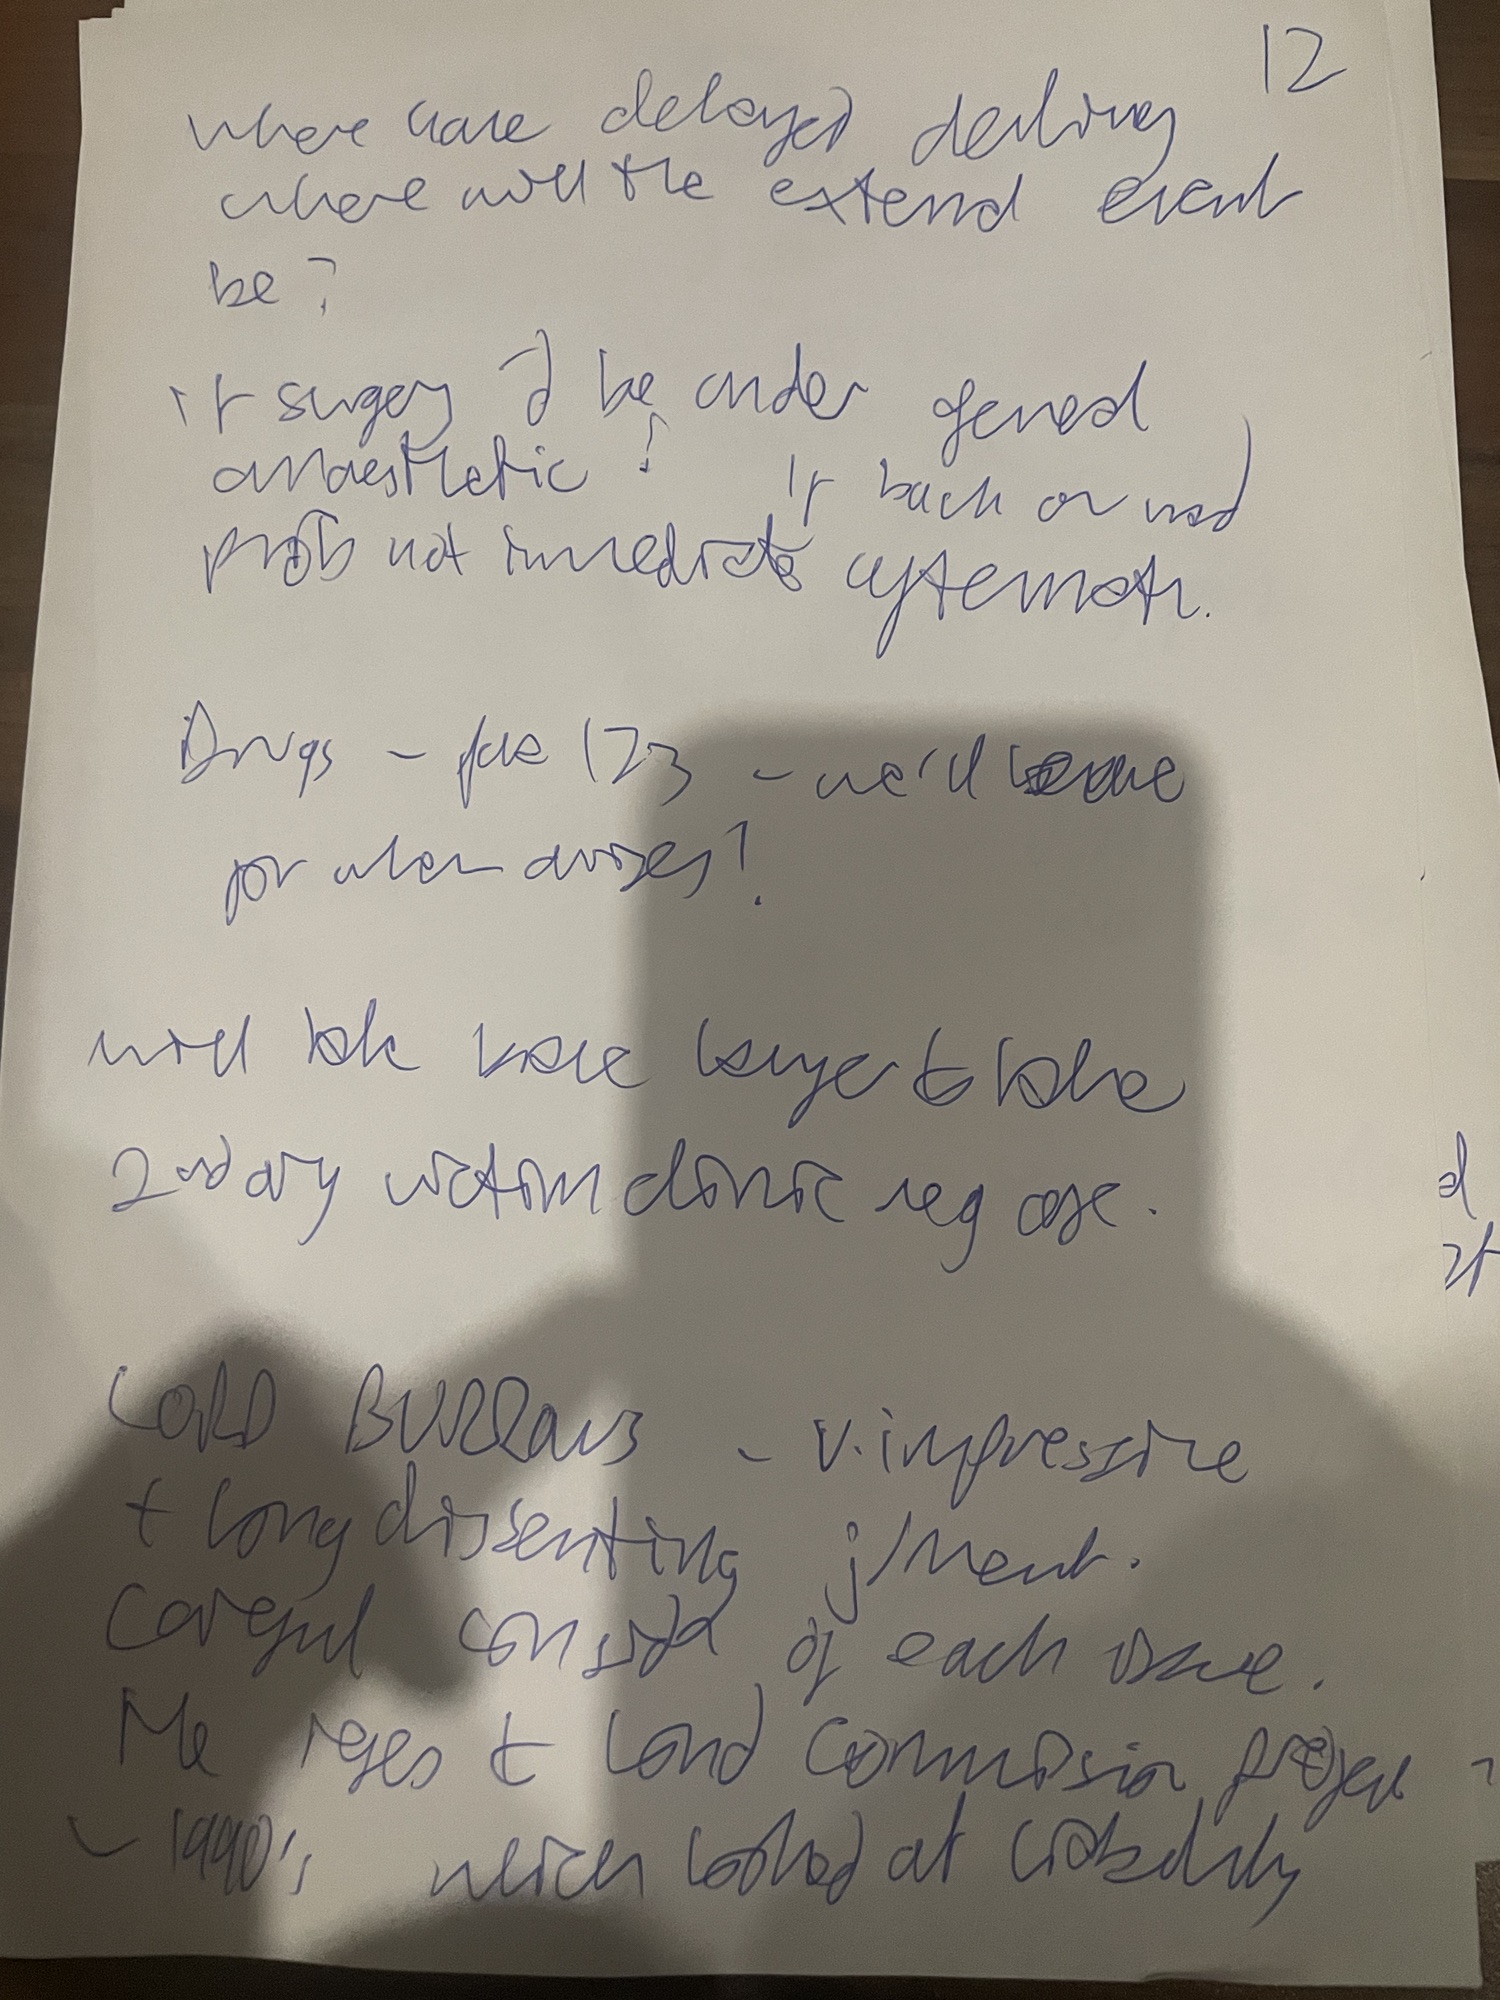 12
where have delayed
where will the extend event
be?
if surgery be under general
anaesthetic? If back or
prob not immediate aftermath.
Drugs - 123 - we'll leave
for when arises?
will take longer to take
2ndary victim clinic neg case.
LORD BURROWS - v. impressive
+ long dissenting j/ment.
Careful consid of each issue.
He refers to Land Commission project
- 1990's which looked at liability
d